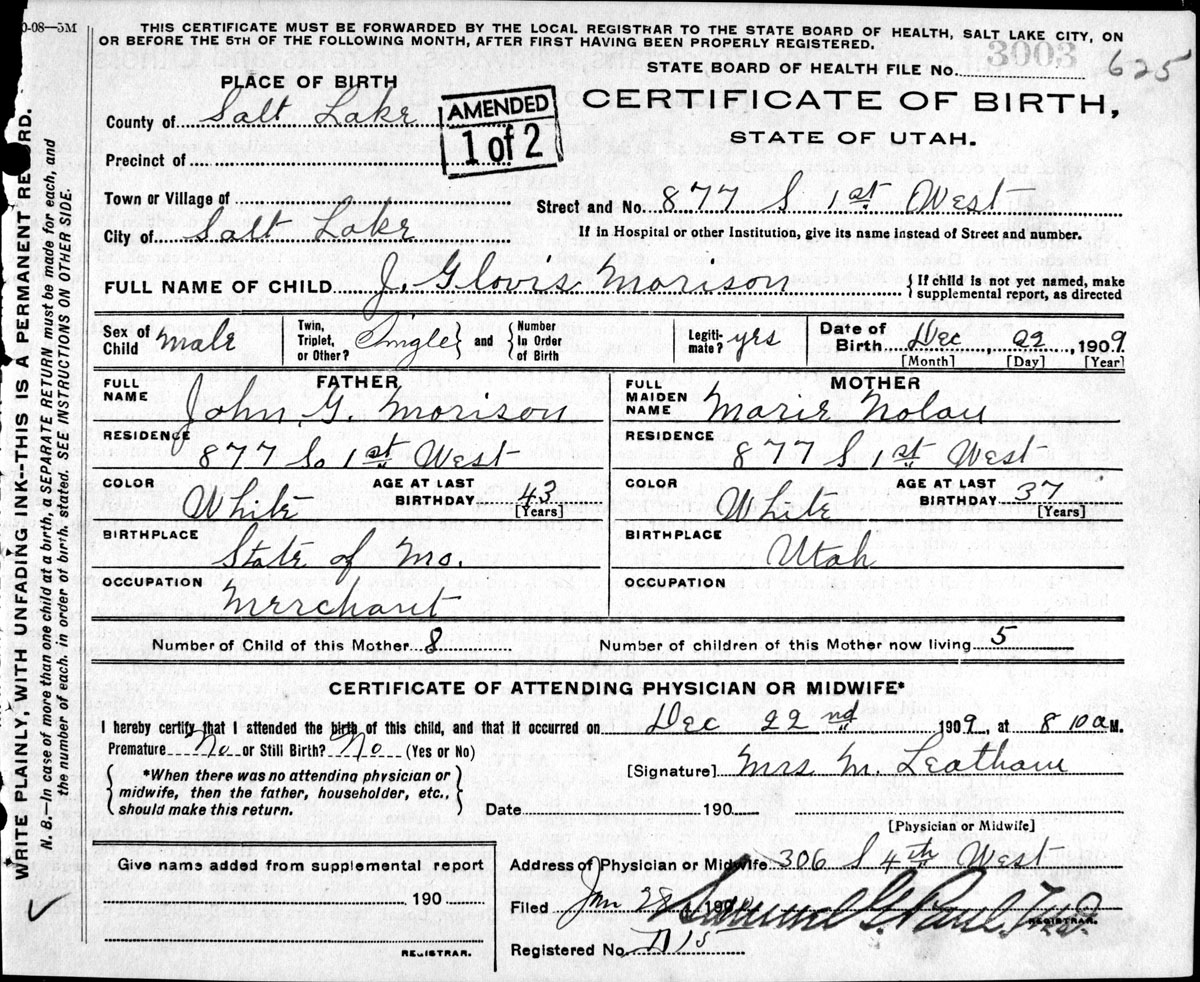 0-08—5M
THIS CERTIFICATE MUST BE FORWARDED BY THE LOCAL REGISTRAR TO THE STATE BOARD OF HEALTH, SALT LAKE CITY, ON
OR BEFORE THE 5TH OF THE FOLLOWING MONTH, AFTER FIRST HAVING BEEN PROPERLY REGISTERED.
STATE BOARD OF HEALTH FILE No. 3003 625
PLACE OF BIRTH
County of Salt Lake
AMENDED
1 of 2
CERTIFICATE OF BIRTH,
STATE OF UTAH.
Precinct of
Town or Village of
Street and No. 877 S 1st West
City of Salt Lake
If in Hospital or other Institution, give its name instead of Street and number.
FULL NAME OF CHILD J. Glovis Morison
{ If child is not yet named, make
supplemental report, as directed
Sex of Child male
Twin, Triplet, or Other? Single } and { Number In Order of Birth
Legitimate? yes
Date of Birth Dec, 22, 1909
[Month] [Day] [Year]
FATHER
FULL NAME John G. Morison
MOTHER
FULL MAIDEN NAME Marie Nolan
RESIDENCE 877 So 1st West
RESIDENCE 877 S 1st West
COLOR White AGE AT LAST BIRTHDAY 43 [Years]
COLOR White AGE AT LAST BIRTHDAY 37 [Years]
BIRTHPLACE State of Mo.
BIRTHPLACE Utah
OCCUPATION Merchant
OCCUPATION
Number of Child of this Mother 8 Number of children of this Mother now living 5
CERTIFICATE OF ATTENDING PHYSICIAN OR MIDWIFE*
I hereby certify that I attended the birth of this child, and that it occurred on Dec 22nd 1909, at 8 10 a M.
Premature No or Still Birth? No (Yes or No)
{ *When there was no attending physician or
midwife, then the father, householder, etc.,
should make this return. }
[Signature] Mrs M. Leatham
Date 190
[Physician or Midwife]
Give name added from supplemental report
190
REGISTRAR.
Address of Physician or Midwife 306 S 4th West
Filed Jan 28, 190 Samuel G. Paul, M.D.
REGISTRAR.
Registered No.
WRITE PLAINLY, WITH UNFADING INK--THIS IS A PERMANENT RECORD.
N. B.—In case of more than one child at a birth, a SEPARATE RETURN must be made for each, and
the number of each, in order of birth, stated. SEE INSTRUCTIONS ON OTHER SIDE.